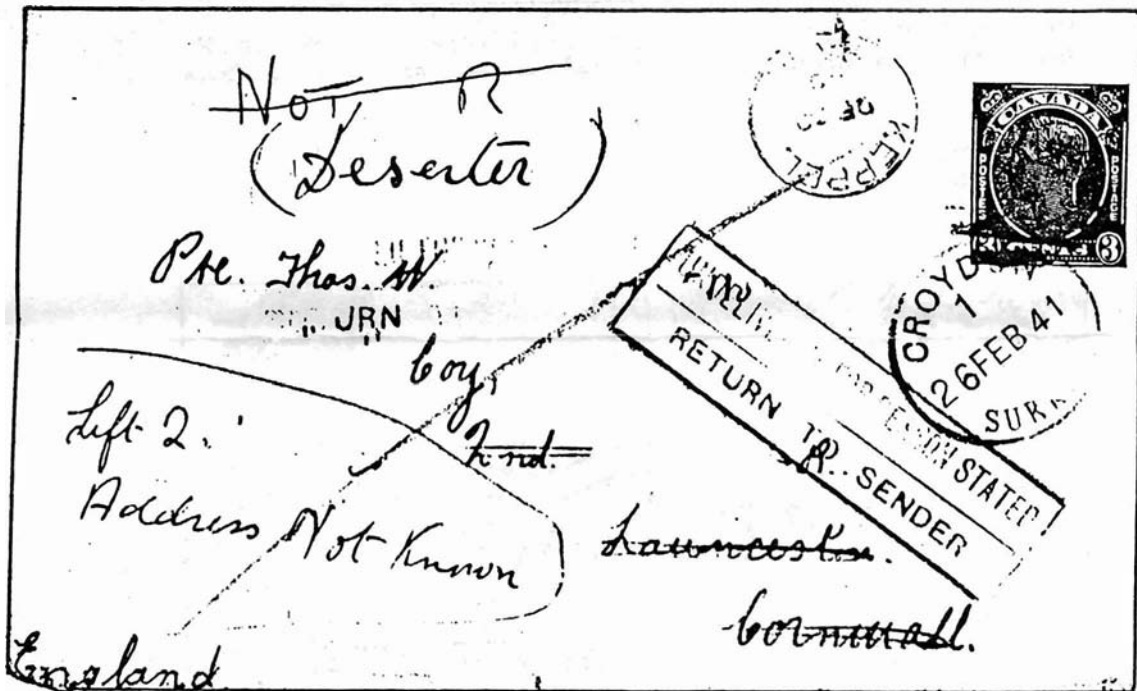 Not R
(Deserter)
Pte. Thos. W.
URN
Coy,
2nd.
Left 2.
Address Not Known
Launceston.
Cornwall.
England
KEPPEL
CANADA
POSTES POSTAGE
3 CENTS 3
CROYDON
1
26 FEB 41
SURR
FOR REASON STATED
RETURN TO SENDER